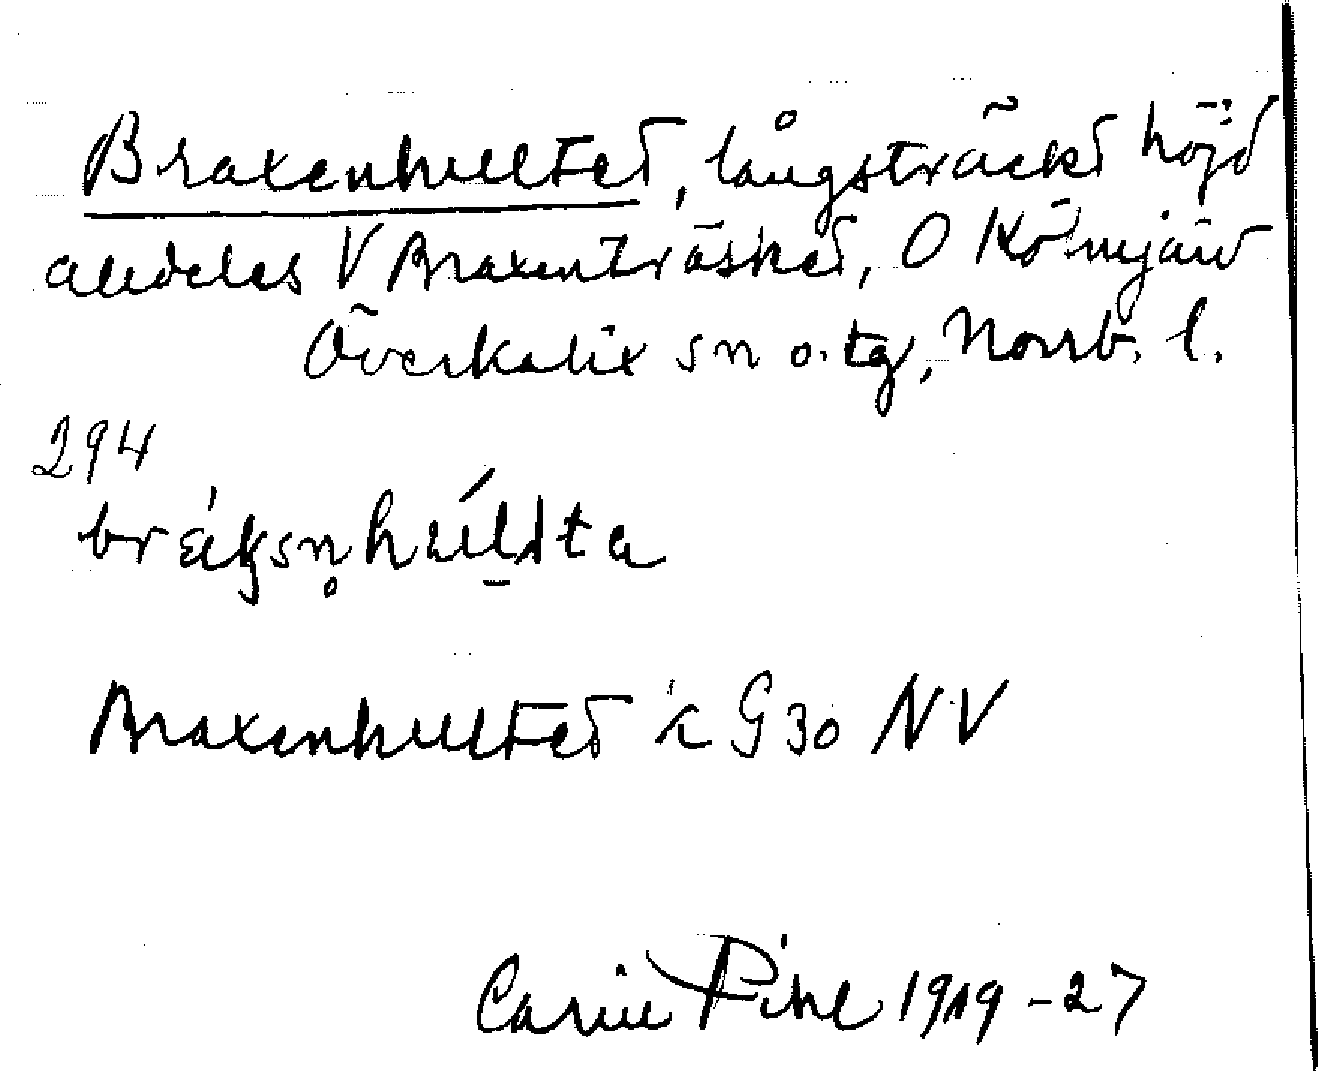 Braxenhultet, långsträckt höjd
alldeles V Braxenträsket, O Kölmjärv
Överkalix sn o. tg, Norrb. l.
294
Braxenhultet k G30 NV
Carin Pihl 1919-27